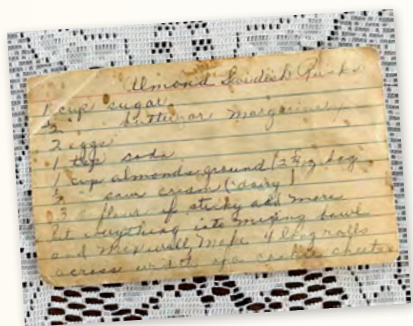 Almond Swedish Rusks
1 cup sugar
1/2 " butter or margarine
2 eggs
1 tsp soda
1 cup almonds ground (2 1/4 oz bag)
1/2 " sour cream (dairy)
3 " flour if sticky add more
Put everything into mixing bowl
and mix well, make 4 long rolls
across width of a cookie sheet